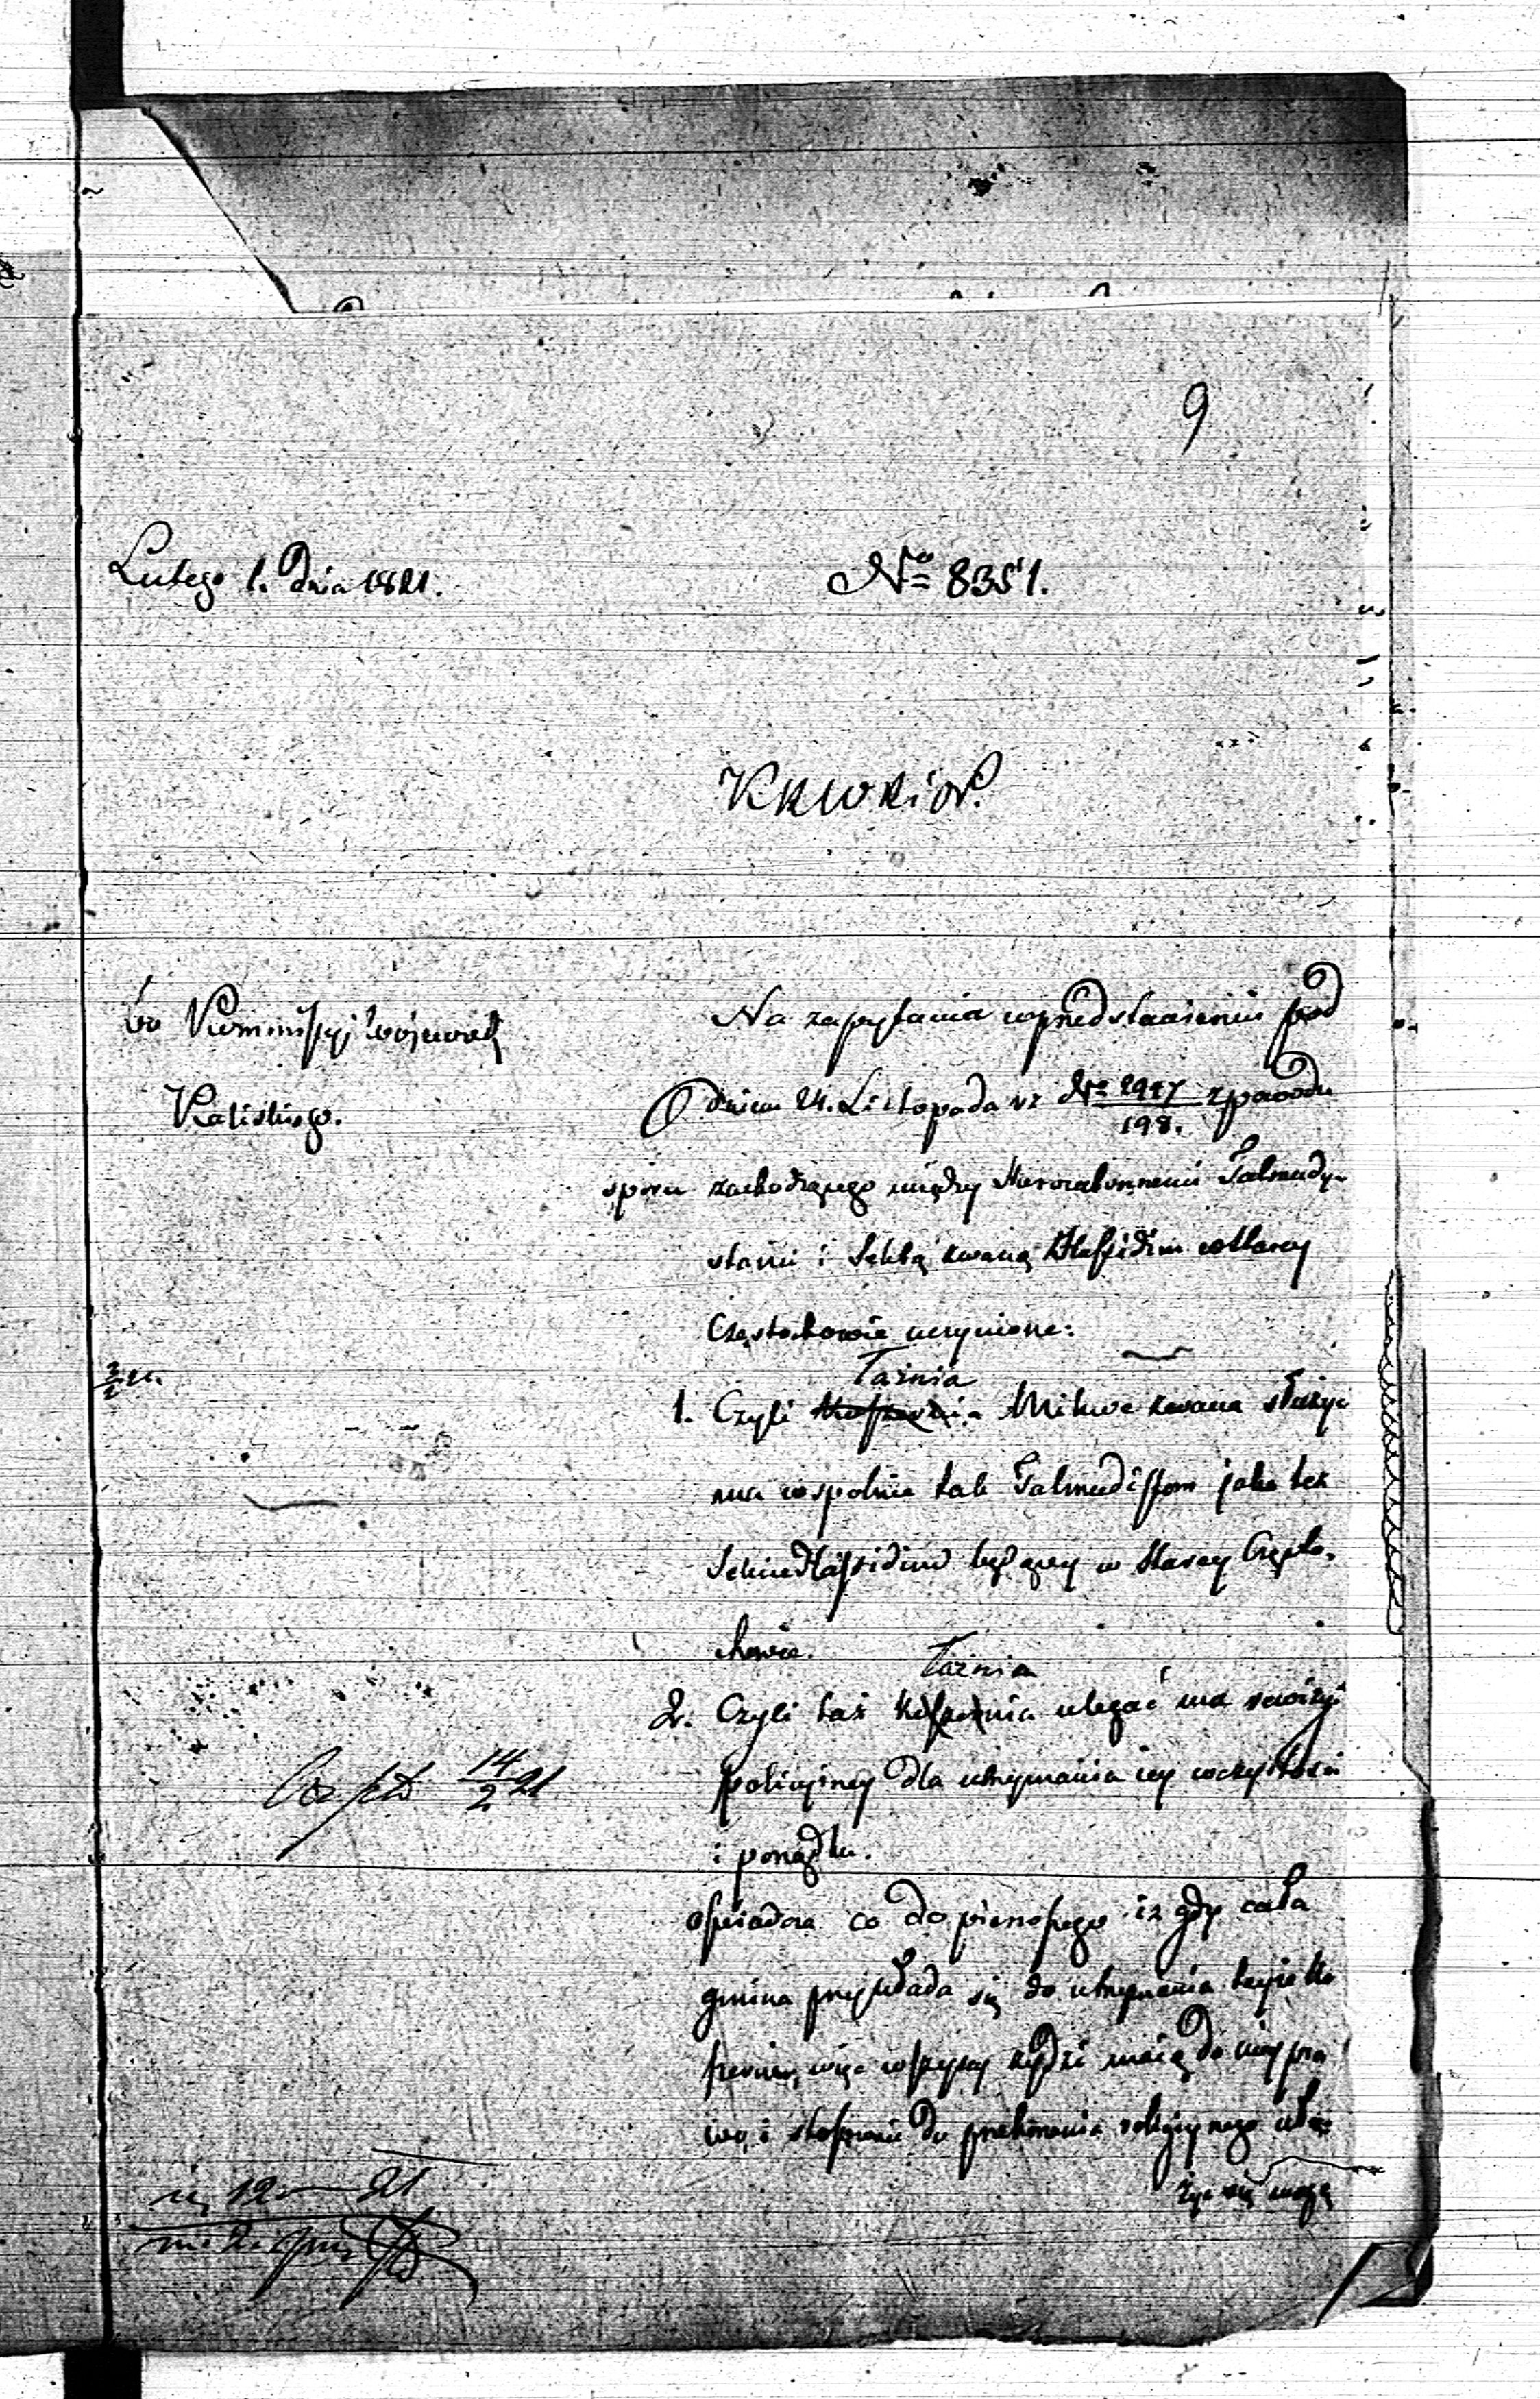 9
Lutego 1. Dnia 1821.
No 8351.
KRWRiOP.
Do Kommissyi Wojewodz
Kaliskiego.
Na zapytania w przedstawieniu pod
Dniem 24. Listopada rz No 2947/198. z powodu
sporu zachodzącego między Starozakonnemi Talmudy-
stami i Sektą zwaną Hussidim w Starey
Częstochowie uczynione:
Łaźnia
1. Czyli Mikwe zwana służyć
ma wspolnie tak Talmudistom jako też
Sekcie Hassidim będącey w Starey Często-
chowie.
Łaźnia
2. Czyli taż ulegać ma rewizyi
policyiney dla utrzymania iey w czystości
i porządku.
14/2 21
oświadcza co do pierwszego iż gdy cała
gmina przykłada się do utrzymania teyże
więc wszyscy żydzi maią do niey pra
wo, i stosownie do przekonania religiynego
żyć się mogą